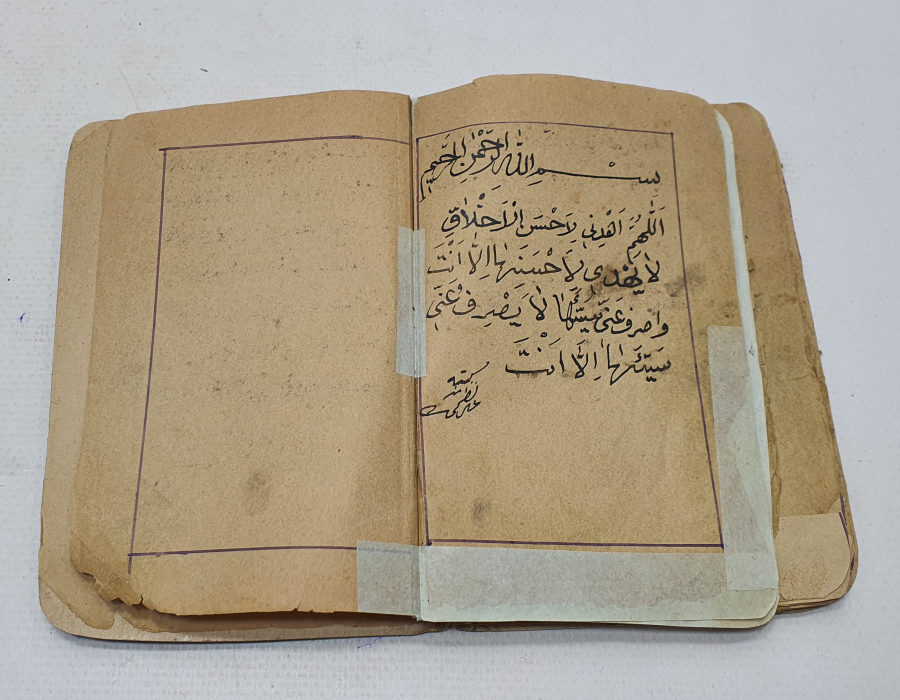 بِسْمِ اللّٰهِ الرَّحْمٰنِ الرَّحِيْمِ
اَللّٰهُمَّ اَهْدِنِی لِاَحْسَنِ الْاَخْلَاقِ
لَا يَهْدِی لِاَحْسَنِهَا اِلَّا اَنْتَ
وَاصْرِفْ عَنّی سَيِّئَهَا لَا يَصْرِفُ عَنّی
سَيِّئَهَا اِلَّا اَنْتَ